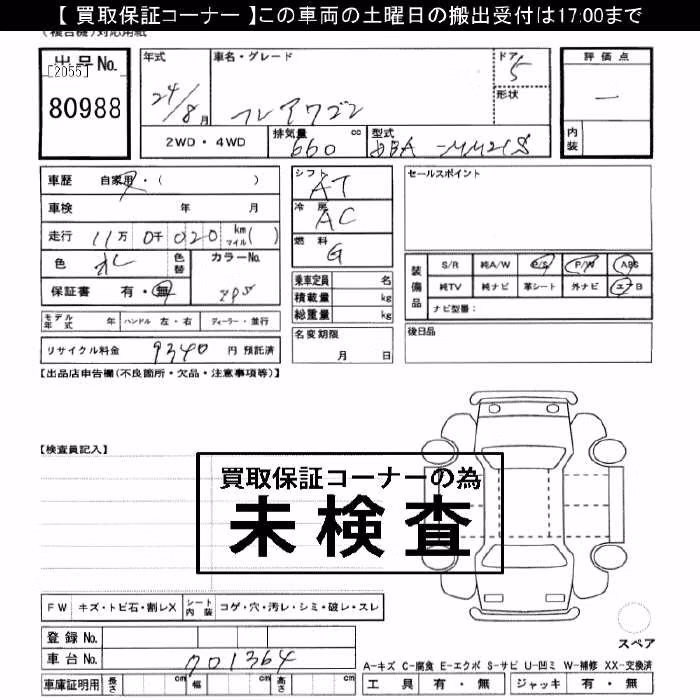 【 買取保証コーナー 】この車両の土曜日の搬出受付は17:00まで
(複合機)対応用紙
出品No. [2055] 80988
年式 24/8月
車名・グレード フレアワゴン
ドア 5
形状
評価点 —
内装
2WD・4WD
排気量 660 cc
型式 DBA-MM21S
車歴 自家用・( )
車検 年 月
走行 11万 0千 020 km マイル( )
色 色替
カラーNo. ZPS
保証書 有・無
モデル年式 年 ハンドル 左・右 ディーラー・並行
リサイクル料金 9340 円 預託済
シフト AT
冷房 AC
燃料 G
乗車定員 名
積載量 kg
総重量 kg
名変期限 月 日
セールスポイント
装備品 S/R 純A/W P/S P/W ABS
純TV 純ナビ 革シート 外ナビ エアB
ナビ型番：
後日品
【出品店申告欄(不良箇所・欠品・注意事項等)】
【検査員記入】
買取保証コーナーの為
未検査
FW キズ・トビ石・割レX シート内装 コゲ・穴・汚レ・シミ・破レ・スレ
登録No.
車台No. 701364
車庫証明用 長さ cm 幅 cm 高さ cm
スペア
A-キズ C-腐食 E-エクボ S-サビ U-凹ミ W-補修 XX-交換済
工具 有・無 ジャッキ 有・無